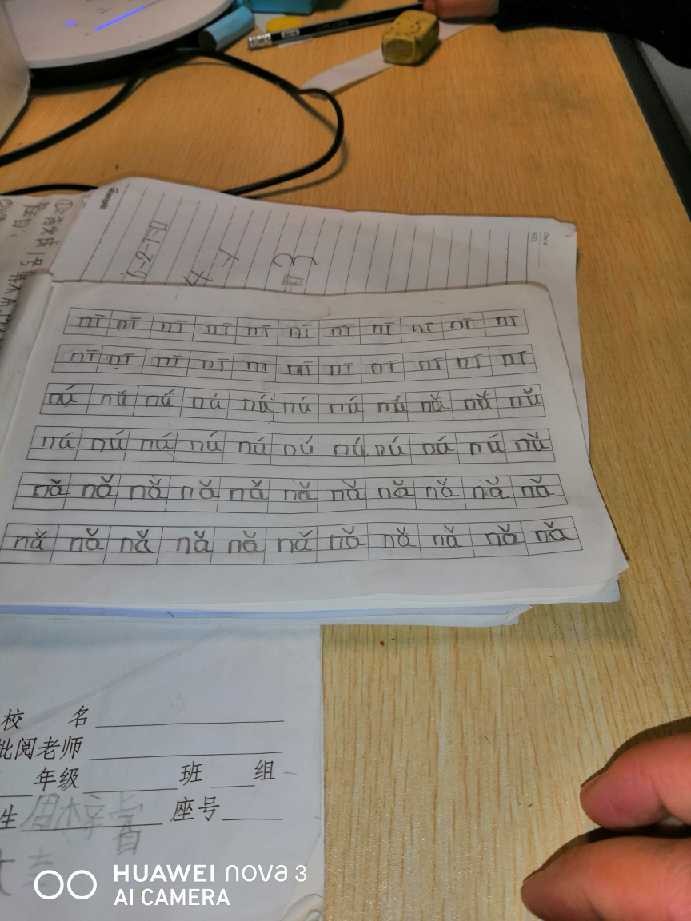 nī nī nī nī nī nī nī nī nī nī nī
nī nī nī nī nī nī nī nī nī nī nī
nú nú nú nú nú nú nú nú nǔ nǔ nǔ
nú nú nú nú nú nú nú nú nú nú nǔ
nǎ nǎ nǎ nǎ nǎ nǎ nǎ nǎ nǎ nǎ nǎ
nǎ nǎ nǎ nǎ nǎ nǎ nǎ nǎ nǎ nǎ nǎ
校 名
批阅老师
年级 班 组
生 座号
HUAWEI nova 3
AI CAMERA